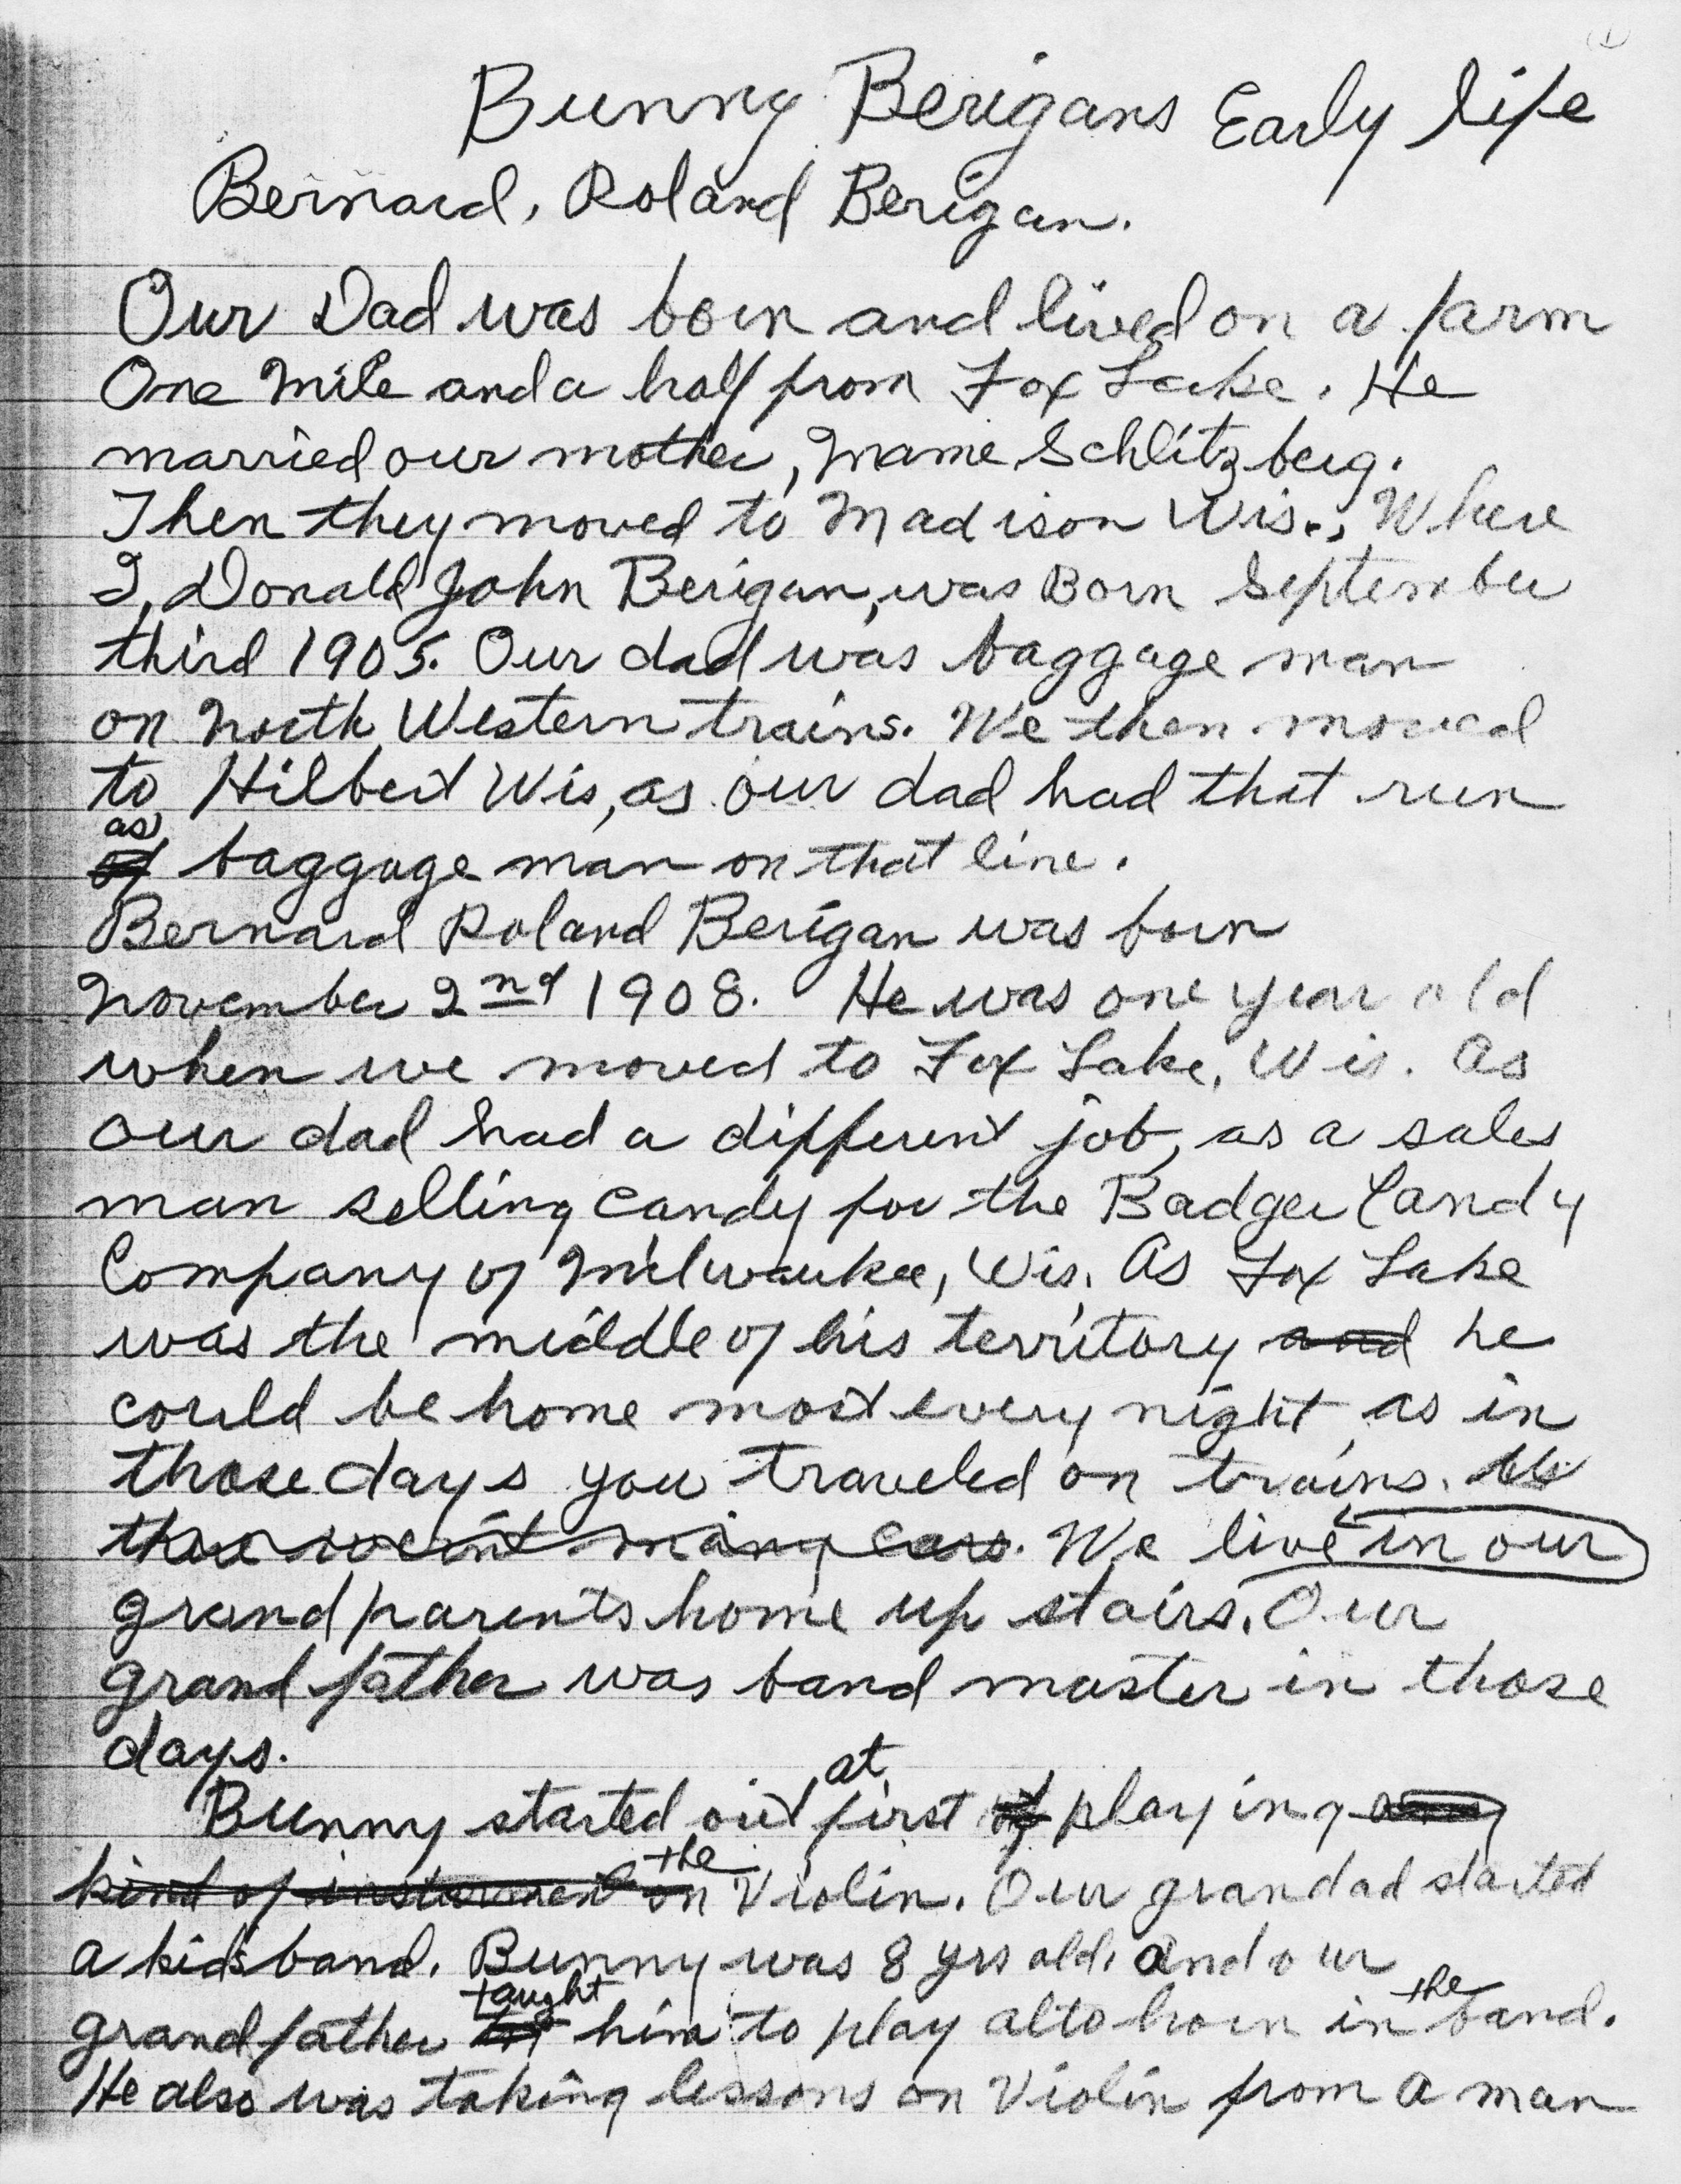 (1)
Bunny Berigans Early life
Bernard, Roland Berigan.
Our Dad was born and lived on a farm
One mile and a half from Fox Lake. He
married our mother, Mame Schlitzberg.
Then they moved to Madison Wis., Where
I, Donald John Berigan, was Born September
third 1905. Our dad was baggage man
on North Western trains. We then moved
to Hilbert Wis, as our dad had that run
as
of baggage man on that line.
Bernard Roland Berigan was born
November 2nd 1908. He was one year old
when we moved to Fox Lake, Wis. As
our dad had a different job, as a sales
man selling candy for the Badger Candy
Company of Milwaukee, Wis. As Fox Lake
was the middle of his territory and he
could be home most every night, as in
those days you traveled on trains.
there wernt many cars. We live in our
grand parents home up stairs. Our
grand father was band master in those
days.
at
Bunny started out first of playing any
the
kind of insturment on Violin. Our grandad started
a kids band. Bunny was 8 yrs old. And our
taught the
grandfather him to play alto horn in band.
He also was taking lessons on Violin from a man